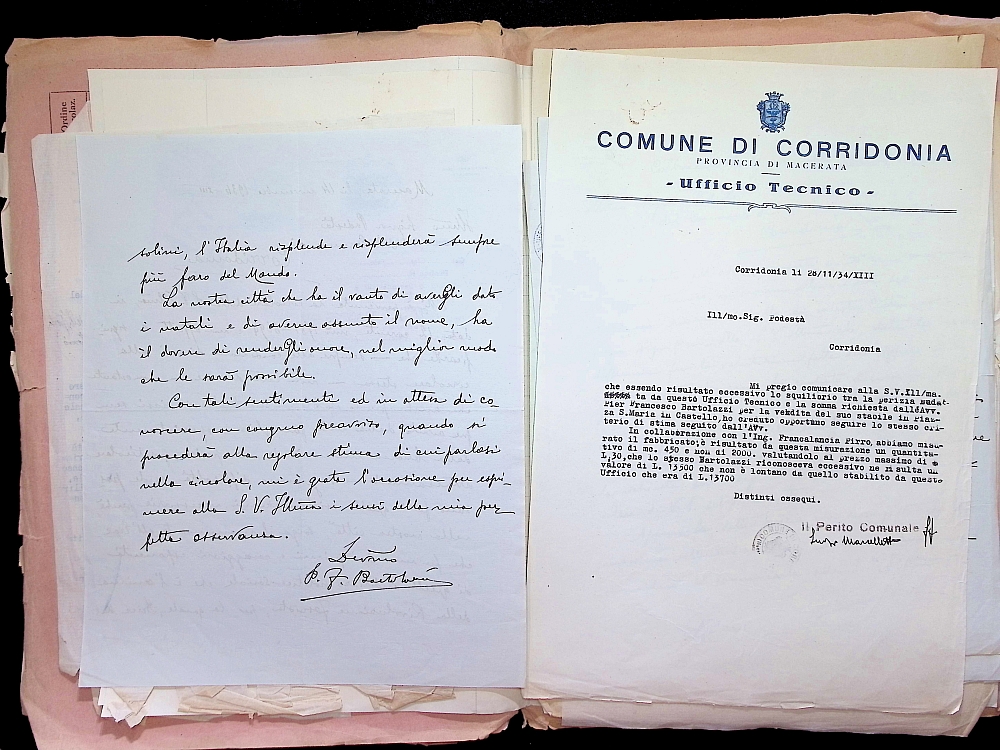 Ordine
solini, l'Italia risplende e risplenderà sempre
più faro del Mondo.
La nostra città che ha il vanto di avergli dato
i natali e di averne assunto il nome, ha
il dovere di rendergli onore, nel miglior modo
che le sarà possibile.
Con tali sentimenti ed in attesa di co-
noscere, con congruo preavviso, quando si
procederà alla regolare stima di cui parlasi
nella circolare, mi è grata l'occasione per espri-
mere alla S. V. Ill/ma i sensi della mia per
fetta osservanza.
Dev/mo
P. F. Bartolazzi
COMUNE DI CORRIDONIA
PROVINCIA DI MACERATA
- Ufficio Tecnico -
Corridonia li 28/11/34/XIII
Ill/mo.Sig. Podestà
Corridonia
Mi pregio comunicare alla S.V.Ill/ma.
che essendo risultato eccessivo lo squilibrio tra la perizia redat-
ta da questo Ufficio Tecnico e la somma richiesta dall'Avv.
Pier Francesco Bartolazzi per la vendita del suo stabile in Piaz-
za S.Maria in Castello,ho creduto opportuno seguire lo stesso cri-
terio di stima seguito dall'AVv.
In collaborazione con l'Ing. Francalancia Pirro,abbiamo misu-
rato il fabbricato;è risultato da questa misurazione un quantita-
tivo di mc. 450 e non di 2000. valutandolo al prezzo massimo di
L.30,che lo stesso Bartolazzi riconosceva eccessivo ne risulta un
valore di L. 13500 che non è lontano da quello stabilito da questo
Ufficio che era di L.13700
Distinti ossequi.
Il Perito Comunale ff